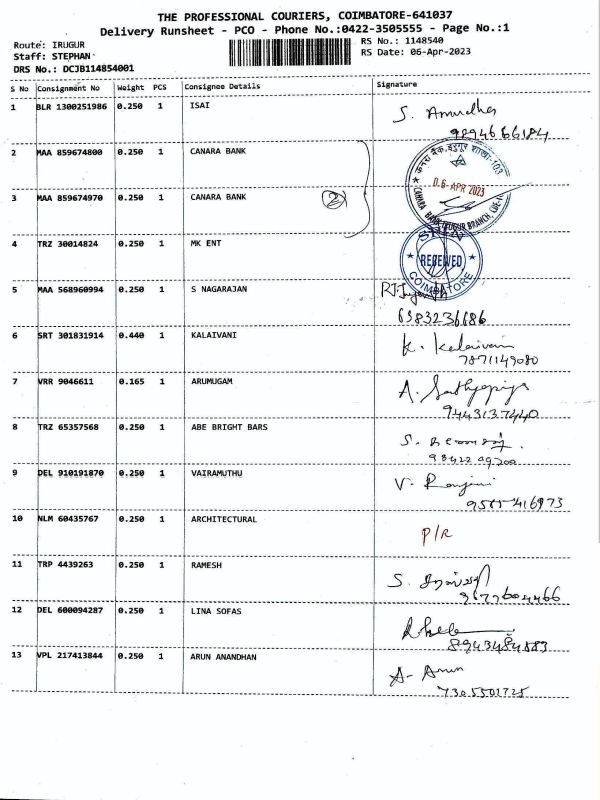 THE PROFESSIONAL COURIERS, COIMBATORE-641037
Delivery Runsheet - PCO - Phone No.:0422-3505555 - Page No.:1
Route: IRUGUR
RS No.: 1148540
Staff: STEPHAN
RS Date: 06-Apr-2023
DRS No.: DCJB114854001
S No Consignment No Weight PCS Consignee Details Signature
1 BLR 1300251986 0.250 1 ISAI S. Anusdha
9894666184
2 MAA 859674800 0.250 1 CANARA BANK
06-APR 2023
3 MAA 859674970 0.250 1 CANARA BANK 2
CANARA BANK IRUGUR BRANCH, CBE-
4 TRZ 30014824 0.250 1 MK ENT
RECEIVED
COIMBATORE
5 MAA 568960994 0.250 1 S NAGARAJAN
6383236686
6 SRT 301831914 0.440 1 KALAIVANI K. Kalaivani
7871149080
7 VRR 9046611 0.165 1 ARUMUGAM A. Sathyapriya
9443137440
8 TRZ 65357568 0.250 1 ABE BRIGHT BARS S.
9 DEL 910191870 0.250 1 VAIRAMUTHU V. Ranjini
10 NLM 60435767 0.250 1 ARCHITECTURAL P/R
11 TRP 4439263 0.250 1 RAMESH S.
12 DEL 600094287 0.250 1 LINA SOFAS
13 VPL 217413844 0.250 1 ARUN ANANDHAN A- Arun
7305501725